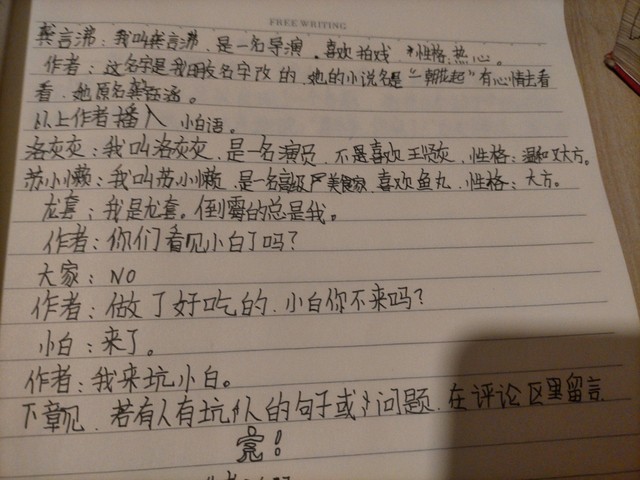 FREE WRITING
龚言沸：我叫龚言沸、是一名导演、喜欢拍戏、性格：热心。
作者：这名字是我朋友名字改的、她的小说名是“一朝花起”有心情去看
看、她原名龚
以上作者播入 小白语。
洛灰灰：我叫洛灰灰、是一名演员、不是喜欢王灰、性格：温和又大方。
苏小懒：我叫苏小懒、是一名高级严美食家、喜欢鱼丸、性格：大方。
龙套：我是龙套。倒霉的总是我。
作者：你们看见小白了吗？
大家：NO
作者：做了好吃的、小白你不来吗？
小白：来了。
作者：我来坑小白。
下章见、若有人有坑队人的句子或问题、在评论区里留言
完！